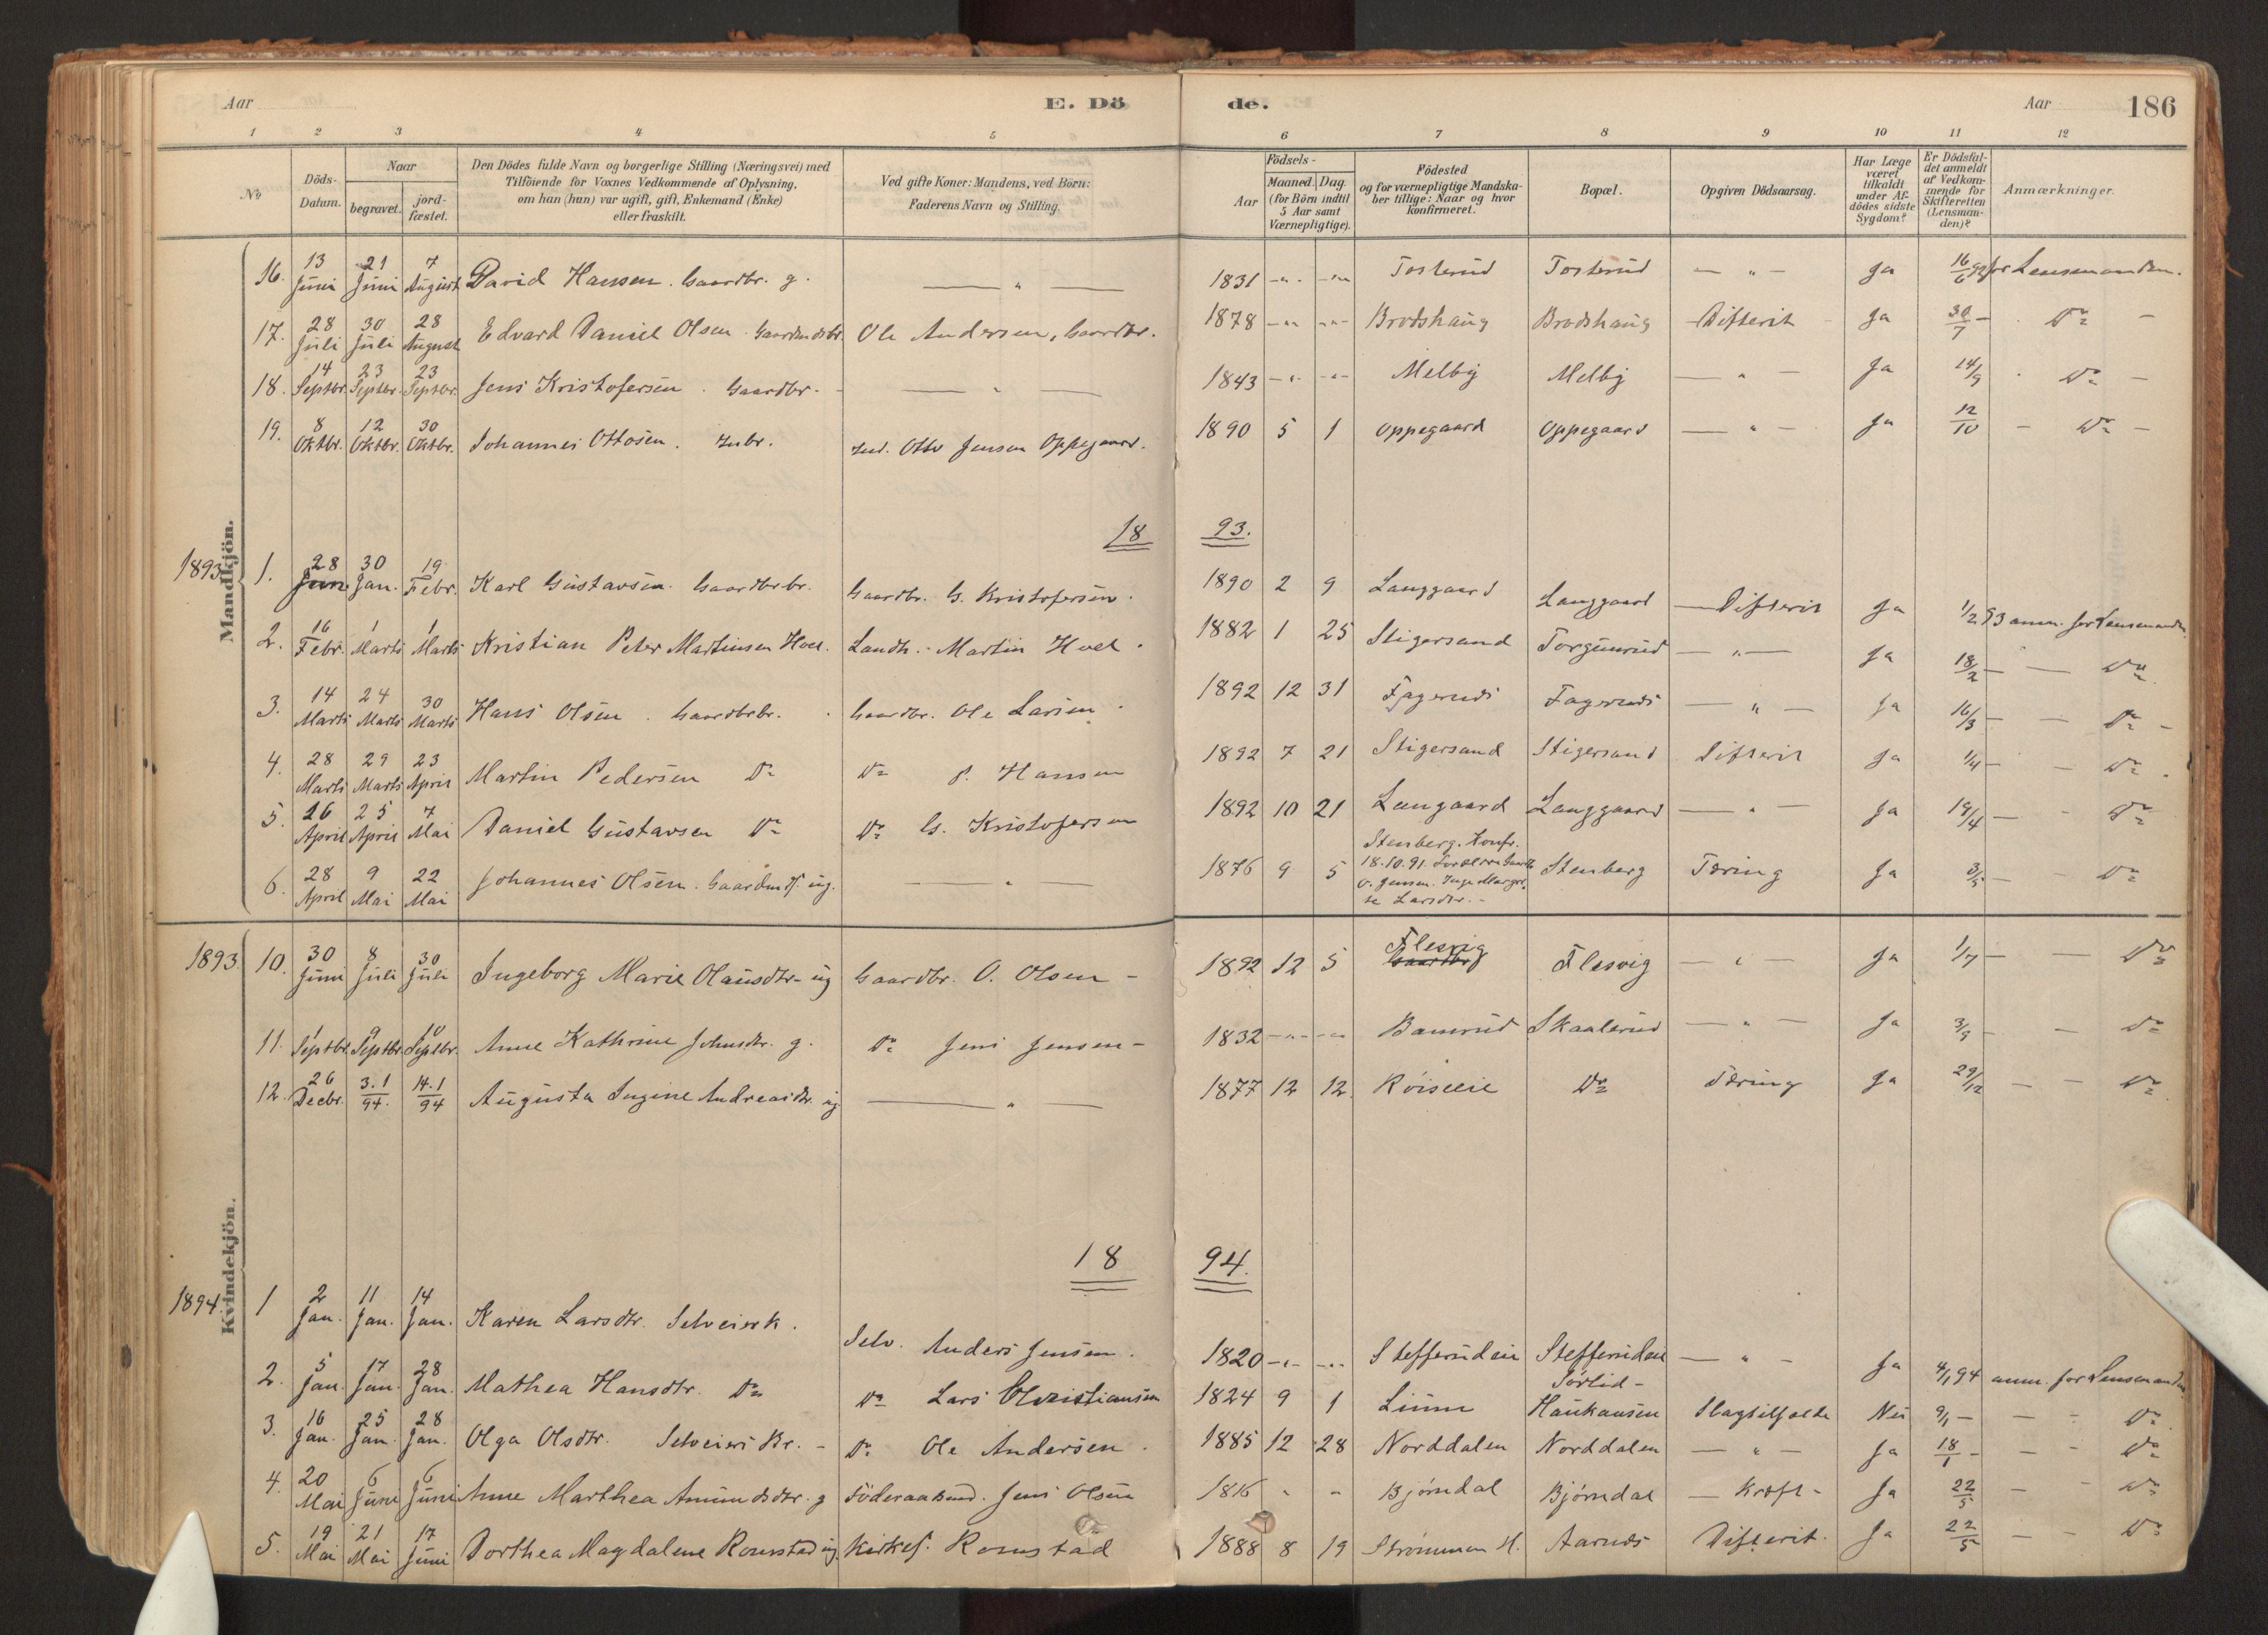 Aar E. Dö de. Aar 186
1 2 3 4 5 6 7 8 9 10 11 12
No
Döds-Datum.
Naar
begravet.
jord-fæstet.
Den Dödes fulde Navn og borgerlige Stilling (Næringsvei) med
Tilföiende for Voxnes Vedkommende af Oplysning,
om han (hun) var ugift, gift, Enkemand (Enke)
eller fraskilt.
Ved gifte Koner: Mandens, ved Börn:
Faderens Navn og Stilling.
Födsels-
Aar
Maaned. Dag.
(for Börn indtil
5 Aar samt
Værnepligtige).
Födested
og for værnepligtige Mandska-
ber tillige: Naar og hvor
konfirmeret.
Bopæl.
Opgiven Dödsaarsag.
Har Læge
været
tilkaldt
under Af-
dödes sidste
Sygdom?
Er Dödsfal-
det anmeldt
af Vedkom-
mende for
Skifteretten
(Lensman-
den)?
Anmærkninger.
Mandkjön.
16. 13 Juni 21 Juni 7 August David Hansen. Gaardbr. g. — " — 1831 -"- -"- Tosterud Tosterud — " — Ja 16/6 92 for Lensmanden.
17. 28 Juli 30 Juli 28 August Edvard Daniel Olsen. Ole Andersen, Gaardbr. 1878 -"- -"- Brodshaug Brodshaug Difterit Ja 30/7 - Do -
18. 14 Septbr. 23 Septbr. 23 Septbr. Jens Kristofersen. Gaardbr. — " — 1843 -"- -"- Melby Melby — " — Ja 14/9 - Do -
19. 8 Oktbr. 12 Oktbr. 30 Oktbr. Johannes Ottosen. Inbr. Ind. Otto Jensen Oppegaard. 1890 5 1 Oppegaard Oppegaard — " — Ja 12/10 - Do -
18 93.
1893 1. 28 Jan. 30 Jan. 19 Febr. Karl Gustavsen. Gaardbrbr. Gaardbr. G. Kristofersen. 1890 2 9 Langgaard Langgaard — Difterit Ja 1/2 93 anm. for Lensmanden
2. 16 Febr. 1 Marts 1 Marts Kristian Peter Martinsen Hoel. Landh. Martin Hoel. 1882 1 25 Stigersand Torgunrud — " — Ja 18/2 — — Do
3. 14 Marts 24 Marts 30 Marts Hans Olsen. Gaardbrbr. Gaardbr. Ole Larsen. 1892 12 31 Fagerudi Fagerudi — " — Ja 16/3 — - Do -
4. 28 Marts 29 Marts 23 April Martin Pedersen Do Do P. Hansen 1892 7 21 Stigersand Stigersand Difterit Ja 1/4 — - Do
5. 16 April 25 April 7 Mai Daniel Gustavsen Do Do G. Kristofersen 1892 10 21 Langaard Langgaard — " — Ja 19/4 — - Do
6. 28 April 9 Mai 22 Mai Johannes Olsen. ug. — " — 1876 9 5 Stenberg. Konfr.
18.10.91. Forældre
O. Jensen. Inge Margre-
te Larsdtr. - Stenberg Tæring Ja 3/5 — - Do
Kvindekjön.
1893. 10. 30 Juni 8 Juli 30 Juli Ingeborg Marie Olausdtr. ug Gaardbr. O. Olsen - 1892 12 5 Flesvig Gaardbr Flesvig — " — Ja 1/7 — — Do
11. 1 Septbr. 9 Septbr. 10 Septbr. Anne Kathrine Johnsdtr. g. Do Jens Jensen - 1832 -"- -"- Bamrud Skaalerud — " — Ja 3/9 - — Do
12. 26 Decbr. 3.1/94. 14.1/94 Augusta Ingine Andreasdtr. ug — " — 1877 12 12. Röiseie Do Tæring Ja 29/12 — - Do
18 94.
1894. 1 2 Jan. 11 Jan. 14 Jan. Karen Larsdtr. Selveierk. Selv. Anders Jensen. 1820 -"- -"- Stefferudeie Stefferudeie — " - Ja 4/1 94 anm. for Lensmanden
2. 5 Jan. 17 Jan. 28 Jan. Mathea Hansdtr. Do Do Lars Christiansen 1824 9 1 Linne Sörlid-
Haukaasen Slagtilfælde Nei 9/1 — — - Do
3. 16 Jan. 25 Jan. 28 Jan. Olga Olsdtr. Selveiers Br. - Do Ole Andersen. 1885 12 28 Norddalen Norddalen — " — Ja 18/1 - — - Do
4. 20 Mai 6 Juni 6 Juni Anne Marthea Amundsdtr. g Föderaadsmd. Jens Olsen 1816 " " Bjørndal Bjørndal — Kræft - Ja 22/5 — - Do
5. 19 Mai 21 Mai 17 Juni Dorthea Magdalene Romstad ug. Kirkes. Romstad 1888 8 19 Strömmen St. Aarnæs Difterit. Ja 22/5 — - Do